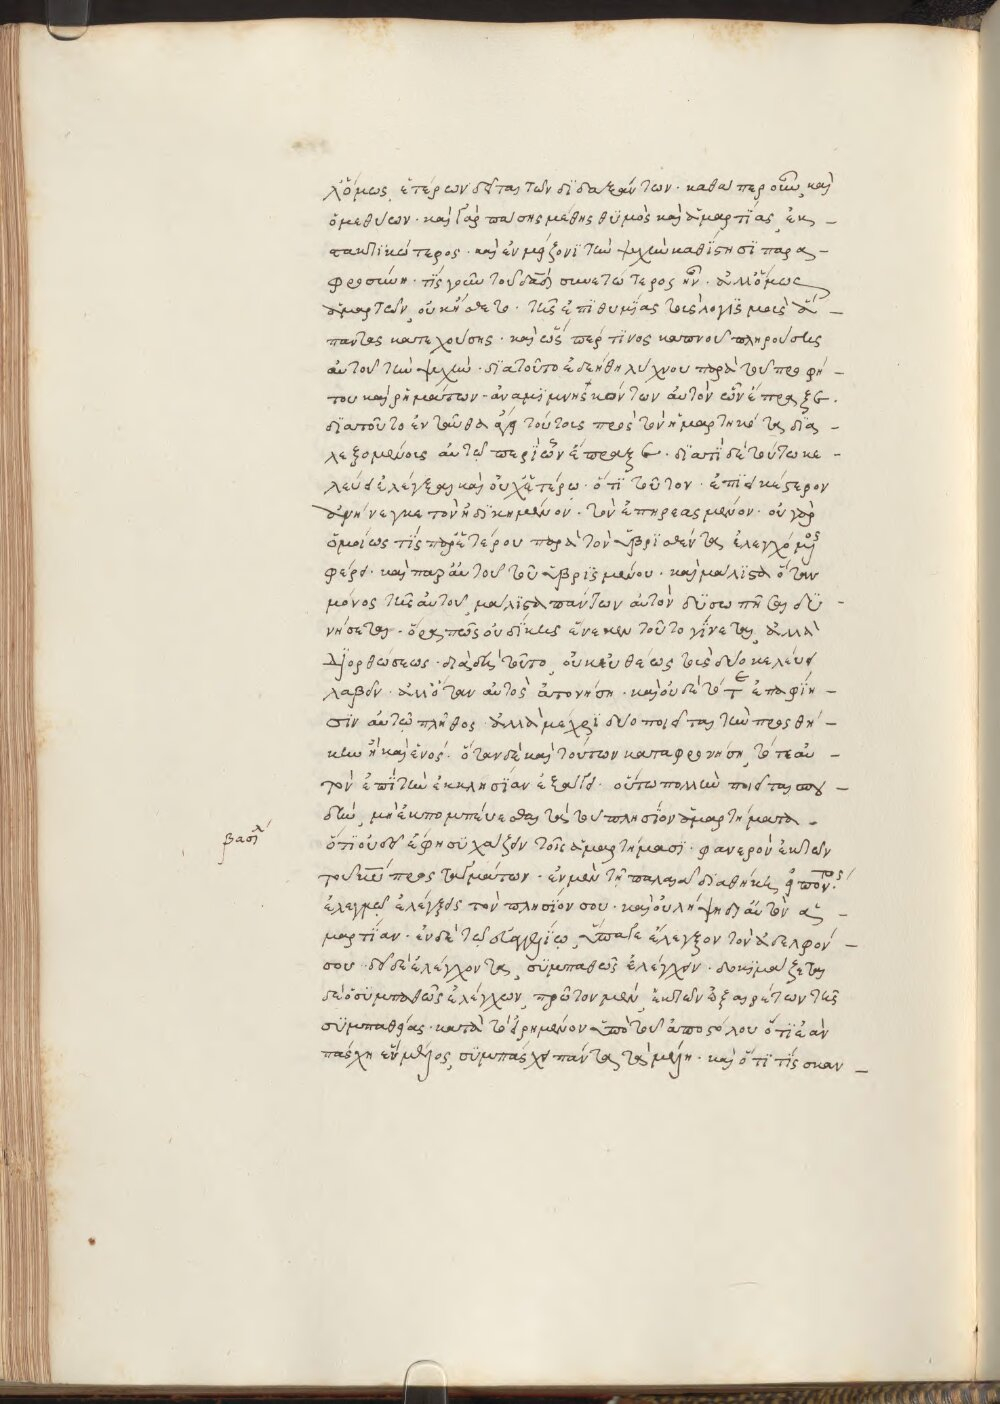 λ' ὅμως ἑτέρων δεῖται τῶν διδαξάντων · καθάπερ οὖν καὶ
ὁ μεθύων · καὶ γὰρ πάσης μέθης θυμὸς καὶ ἁμαρτίας ἐκ-
στατικώτερος · καὶ ἐν μείζονι τὴν ψυχὴν καθίστησι παρα-
φροσύνῃ · τίς γοῦν τοῦ δαδ συνετώτερος ἦν · ἀλλ' ὅμως
ἁμαρτὼν, οὐκ ᾔσθετο · τῆς ἐπιθυμίας τοὺς λογισμοὺς ἅ-
παντας κατεχούσης · καὶ ὥσπερ τινος καπνοῦ πληρούσης
αὐτοῦ τὴν ψυχήν · διὰ τοῦτο ἐδεήθη λύχνου παρὰ τοῦ προφή-
του καὶ ῥημάτων ἀναμιμνησκόντων αὐτὸν ὧν ἔπραξε ·
διὰ τοῦτο ἐνταῦθα ἄγει τούτοις πρὸς τὸν ἡμαρτηκότα δια-
λεξομένοις αὐτῷ περὶ ὧν ἔπραξε · διατί δὲ τούτω κε-
λεύει ἐλέγξαι καὶ οὐχ ἑτέρῳ · ὅτι τοῦτον · ἐπιεικέστερον
ἀνήνεγκε τὸν ἠδικημένον · τὸν ἐπηρεασμένον · οὐ γὰρ
ὁμοίως τις παρ' ἑτέρου παρὰ τὸν ὑβρισθέντα ἐλεγχόμενος
φέρει · καὶ παρ' αὐτοῦ τοῦ ὑβρισμένου · καὶ μάλιστα ὅταν
μόνος τῆς αὐτοῦ μάλιστα πάντων αὐτὸν δυσωπῆσαι δυ-
νήσεται · ὅρα πῶς οὐ δίκης ἕνεκεν τοῦτο γίνεται, ἀλλὰ
διορθώσεως · διὰ δὴ τοῦτο, οὐκ εὐθέως τοὺς δύο κελεύει
λαβεῖν · ἀλλ' ὅταν αὐτὸς ἀτονήσῃ · καὶ οὐδὲ τότε ἐπαφίη-
σιν αὐτῷ πλῆθος · ἀλλὰ μέχρι δύο ποιεῖται τὴν προσθή-
κην ἢ καὶ ἑνός · ὅταν δὲ καὶ τούτων καταφρονήσῃ, τότε αὐ-
τὸν ἐπὶ τὴν ἐκκλησίαν ἐξάγει · οὕτω πολλὴν ποιεῖται σπου-
δὴν, μὴ ἐκπομπεύεσθαι τὰ τοῦ πλησίον ἁμαρτήματα -
βασιλ
ὅτι οὐ δεῖ ἐφησυχάζειν τοῖς ἁμαρτήμασι · φανερὸν ἐκ τῶν
τοῦ κυ προσταγμάτων · ἐν μὲν τῇ παλαιᾷ διαθήκῃ
ἐλεγμῷ ἐλέγξεις τὸν πλησίον σου · καὶ οὐ λήψῃ δι' αὐτὸν ἁ-
μαρτίαν · ἐν δὲ τῷ εὐαγγελίῳ, ὕπαγε ἔλεγξον τὸν ἀδελφόν
σου · δεῖ δὲ ἐλέγχοντα, συμπαθῶς ἐλέγχειν · δοκιμάζεται
δὲ ὁ συμπαθῶς ἐλέγχων, πρῶτον μὲν, ἐκ τῶν ἐξαιρέτων τῆς
συμπαθείας · κατὰ τὸ εἰρημένον ὑπὸ τοῦ ἀποστόλου ὅτι ἐὰν
πάσχῃ ἓν μέλος, συμπάσχει πάντα τὰ μέλη · καὶ ὅτι τίς σκαν-